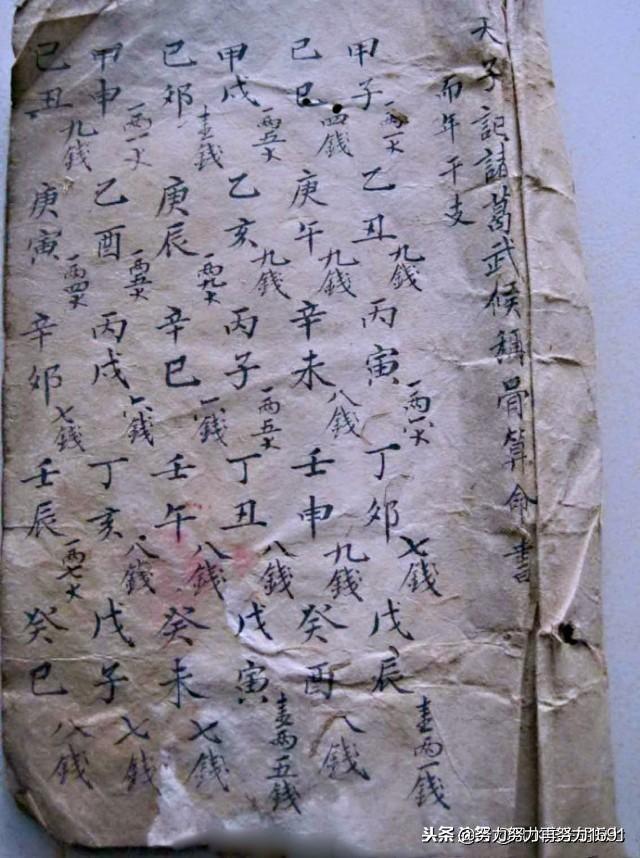 天子記諸葛武候稱骨算命書
而年干支
甲子 一両一大 乙丑 九錢 丙寅 一両 丁卯 七錢 戊辰 壹両一錢
己巳 四錢 庚午 九錢 辛未 八錢 壬申 九錢 癸酉 八錢
甲戌 一両五大 乙亥 九錢 丙子 一両五大 丁丑 八錢 戊寅 壹両五錢
己卯 壹錢 庚辰 一両九大 辛巳 錢 壬午 八錢 癸未 七錢
甲申 一両一大 乙酉 一両五大 丙戌 六錢 丁亥 八錢 戊子 七錢
己丑 九錢 庚寅 一両四大 辛卯 七錢 壬辰 一両七大 癸巳 八錢
头条 @努力努力再努力